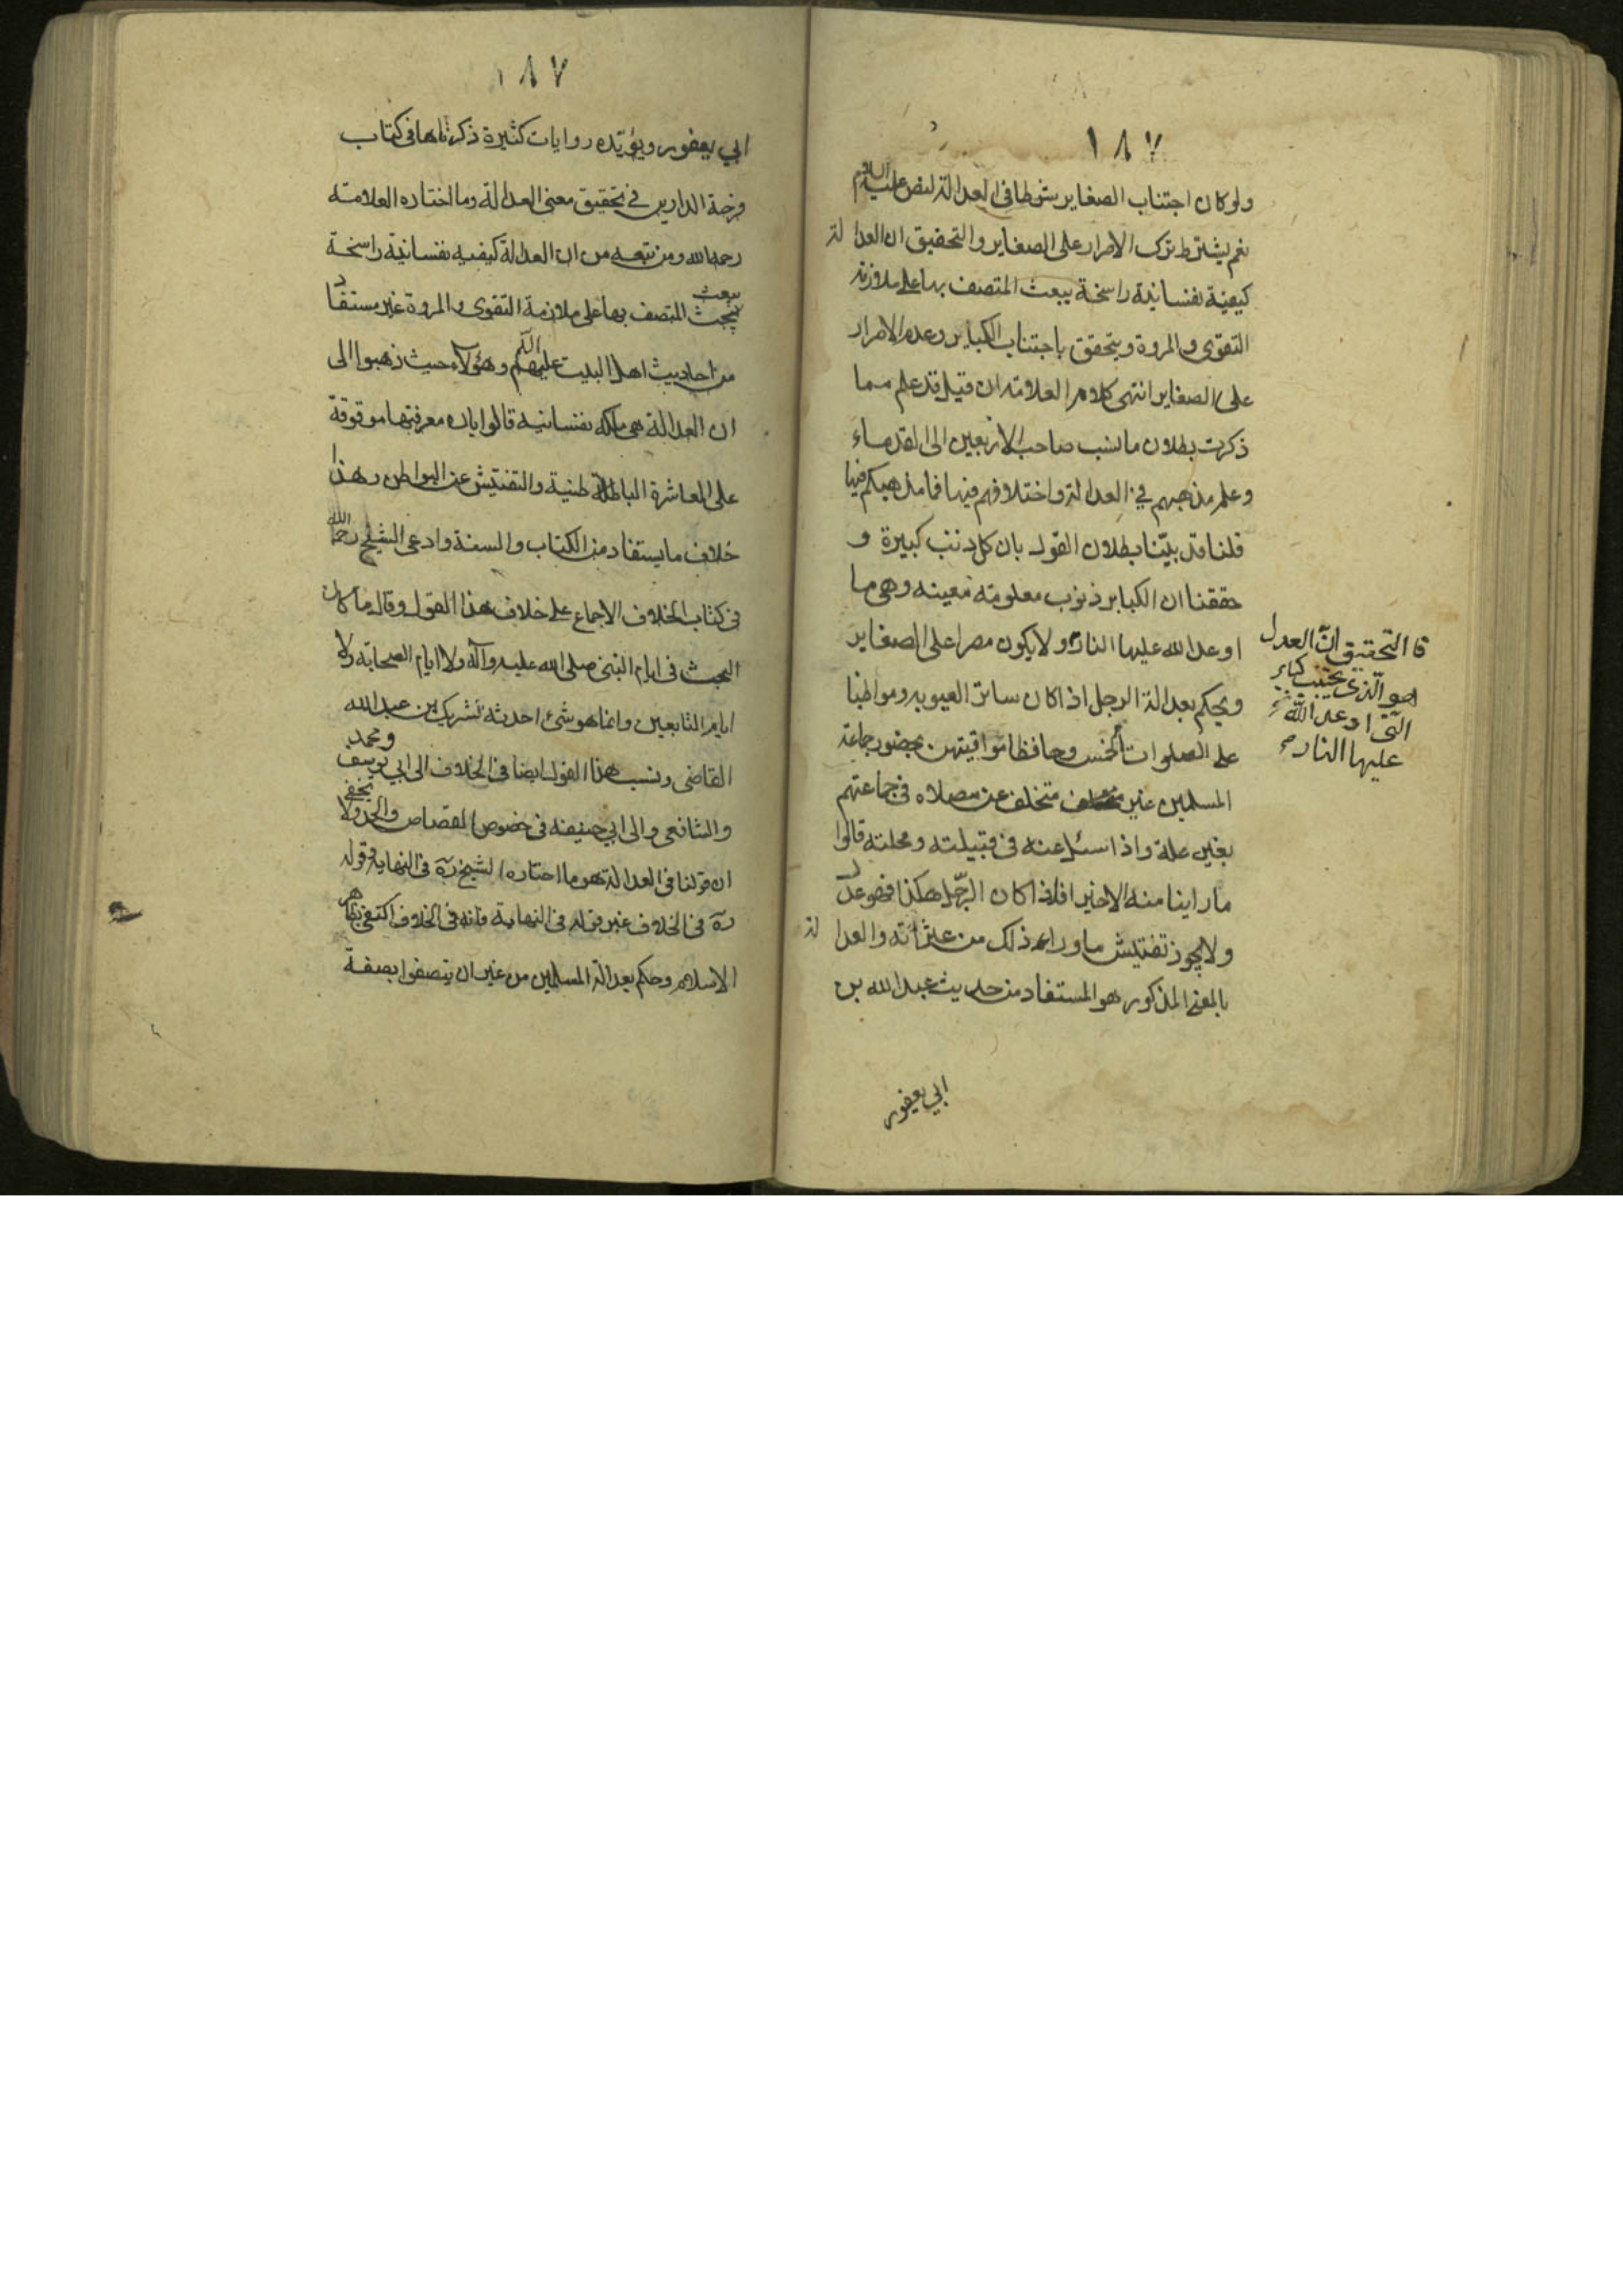 ١٨٧
ولو كان اجتناب الصغاير شرطا فى العدالة لنص عليه السلام
نعم يشترط ترك الاصرار على الصغاير والتحقيق ان العدالة
كيفية نفسانية راسخة يبعث المتصف بها على ملازمة
التقوى والمروة ويتحقق باجتناب الكباير وعدم الاصرار
على الصغاير انتهى كلام العلامة ان قيل قد علم مما
ذكرت بطلان ما نسب صاحب الاربعين الى القدماء
وعلم مذهبهم في العدالة واختلافهم فيها فما مذهبكم فيها
قلنا قد بينّا بطلان القول بان كل ذنب كبيرة و
حققنا ان الكباير ذنوب معلومة معينه وهى ما
اوعد الله عليها النار ولا يكون مصرا على الصغاير
ويحكم بعدالة الرجل اذا كان ساتر العيوبه ومواظبا
على الصلوات الخمس وحافظا لمواقيتهن بحضور جماعة
المسلمين غير متخلف عن مصلاه فى جماعتهم
بغير علة واذا سئل عنه فى قبيلته ومحلته قالوا
ما راينا منه الا خيرا فاذا كان الرّجل هكذا فهو عدل
ولا يجوز تفتيش ما وراء ذلك من عثراته والعدالة
بالمعنى المذكور هو المستفاد من حديث عبد الله بن
ابي يعفور
فا التحقيق انّ العدل
هو الّذى يجتنب كبائر
الّتى اوعد الله
عليها النار
١٨٧
ابي يعفور ويؤيّده روايات كثيرة ذكرناها فى كتاب
فرحة الدارين في تحقيق معنى العدالة وما اختاره العلامة
رحمه الله ومن تبعه من ان العدالة كيفيه نفسانية راسخة
يبعث المتصف بها على ملازمة التقوى والمروة غير مستفاد
من احاديث اهل البيت عليهم السلام وهؤلاء حيث ذهبوا الى
ان العدالة هى ملكه نفسانيه قالوا بان معرفتها موقوفة
على المعاشرة الباطنية والتفتيش عن البواطن وهذا
خلاف ما يستفاد من الكتاب والسنة وادعى الشيخ رحمه الله
فى كتاب الخلاف الاجماع على خلاف هذا القول وقال ما كان
البحث فى ايام النبى صلى الله عليه وآله ولا ايام الصحابة ولا
ايام التابعين وانما هو شئ احدثه شريك بن عبد الله
القاضى ونسب هذا القول ايضا فى الخلاف الى ابى يوسف ومحمد
والشافعى والى ابي حنيفه فى خصوص القصاص والحد ولا يخفى
ان قولنا فى العدالة هو ما اختاره الشيخ ره فى النهاية وقوله
ره فى الخلاف غير قوله فى النهاية فانه فى الخلاف اكتفى بظاهر
الاسلام وحكم بعدالة المسلمين من غير ان يتصفوا بصفة